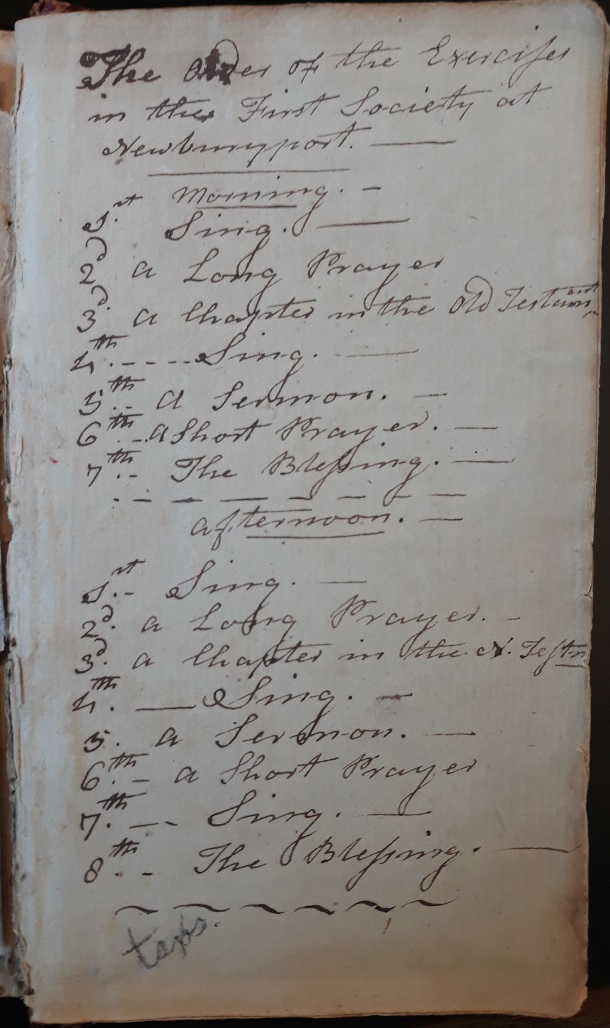 The Order of the Exercises
in the First Society at
Newburyport. —
Morning. –
1.st Sing. —
2d a Long Prayer
3d. a Chapter in the Old Testamnt.
4th. - - - - Sing. —
5th.- a Sermon. —
6th.-a Short Prayer. —
7th.- The Blessing. —
afternoon. —
1.st - Sing. —
2d. a Long Prayer. -
3d. a Chapter in the N. Testm
4th. — Sing. —
5. a Sermon. —
6th. - a Short Prayer
7th. - - Sing. —
8th. - The Blessing. —
texts.